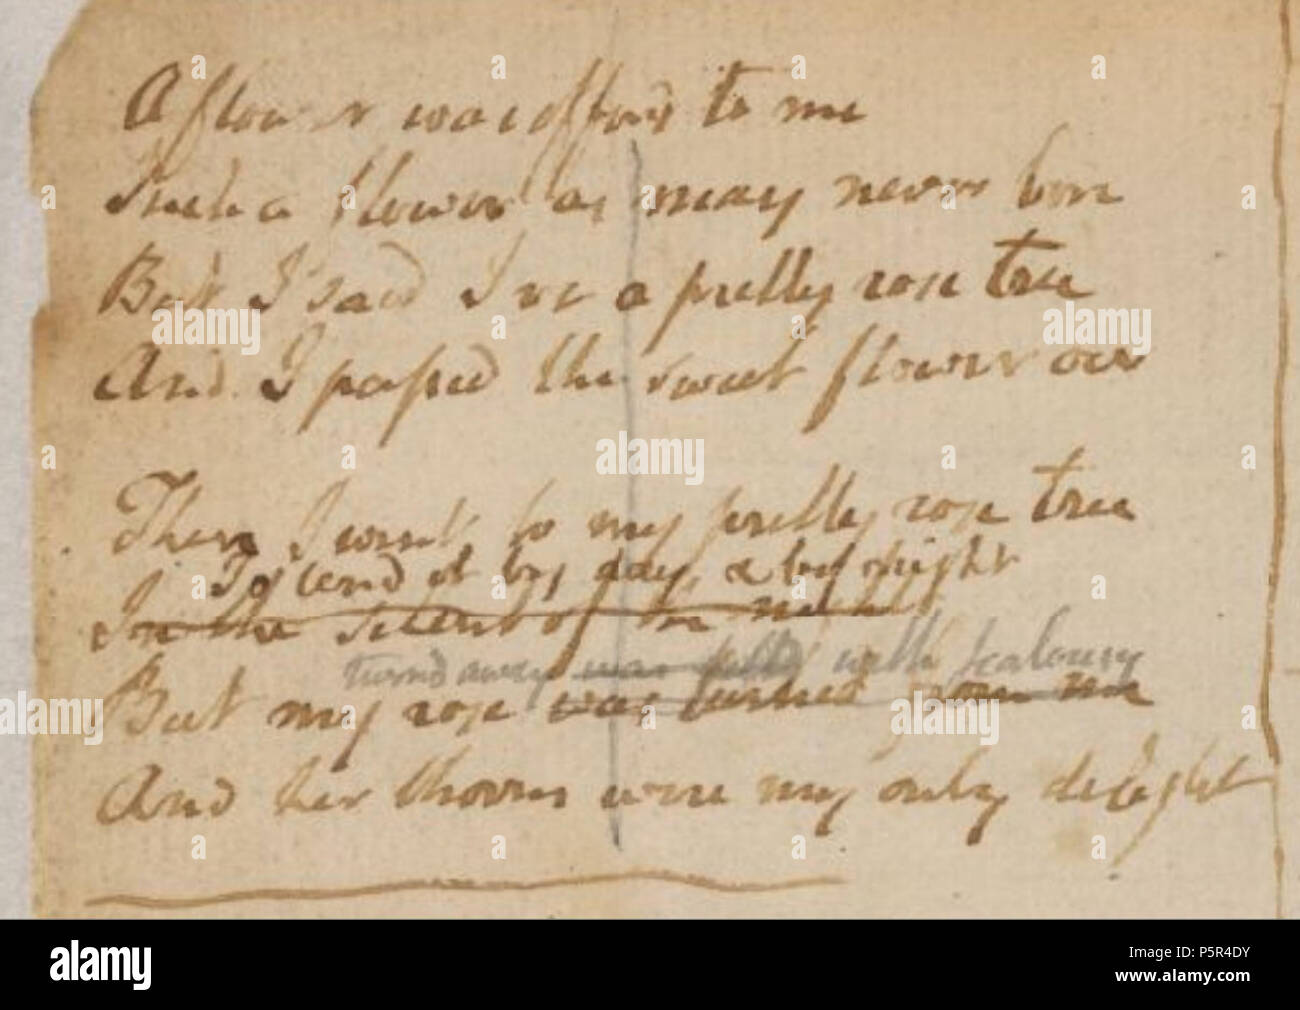 A flower was offerd to me
Such a flower as may never bore
But I said I've a pretty rose tree
And I passed the sweet flower oer
Then I went to my pretty rose tree
To tend it by day, & by night
In the silent of the night
turnd away was filld with jealousy
But my rose was turned from me
And her thorns were my only delight
alamy
Image ID: P5R4DY
www.alamy.com